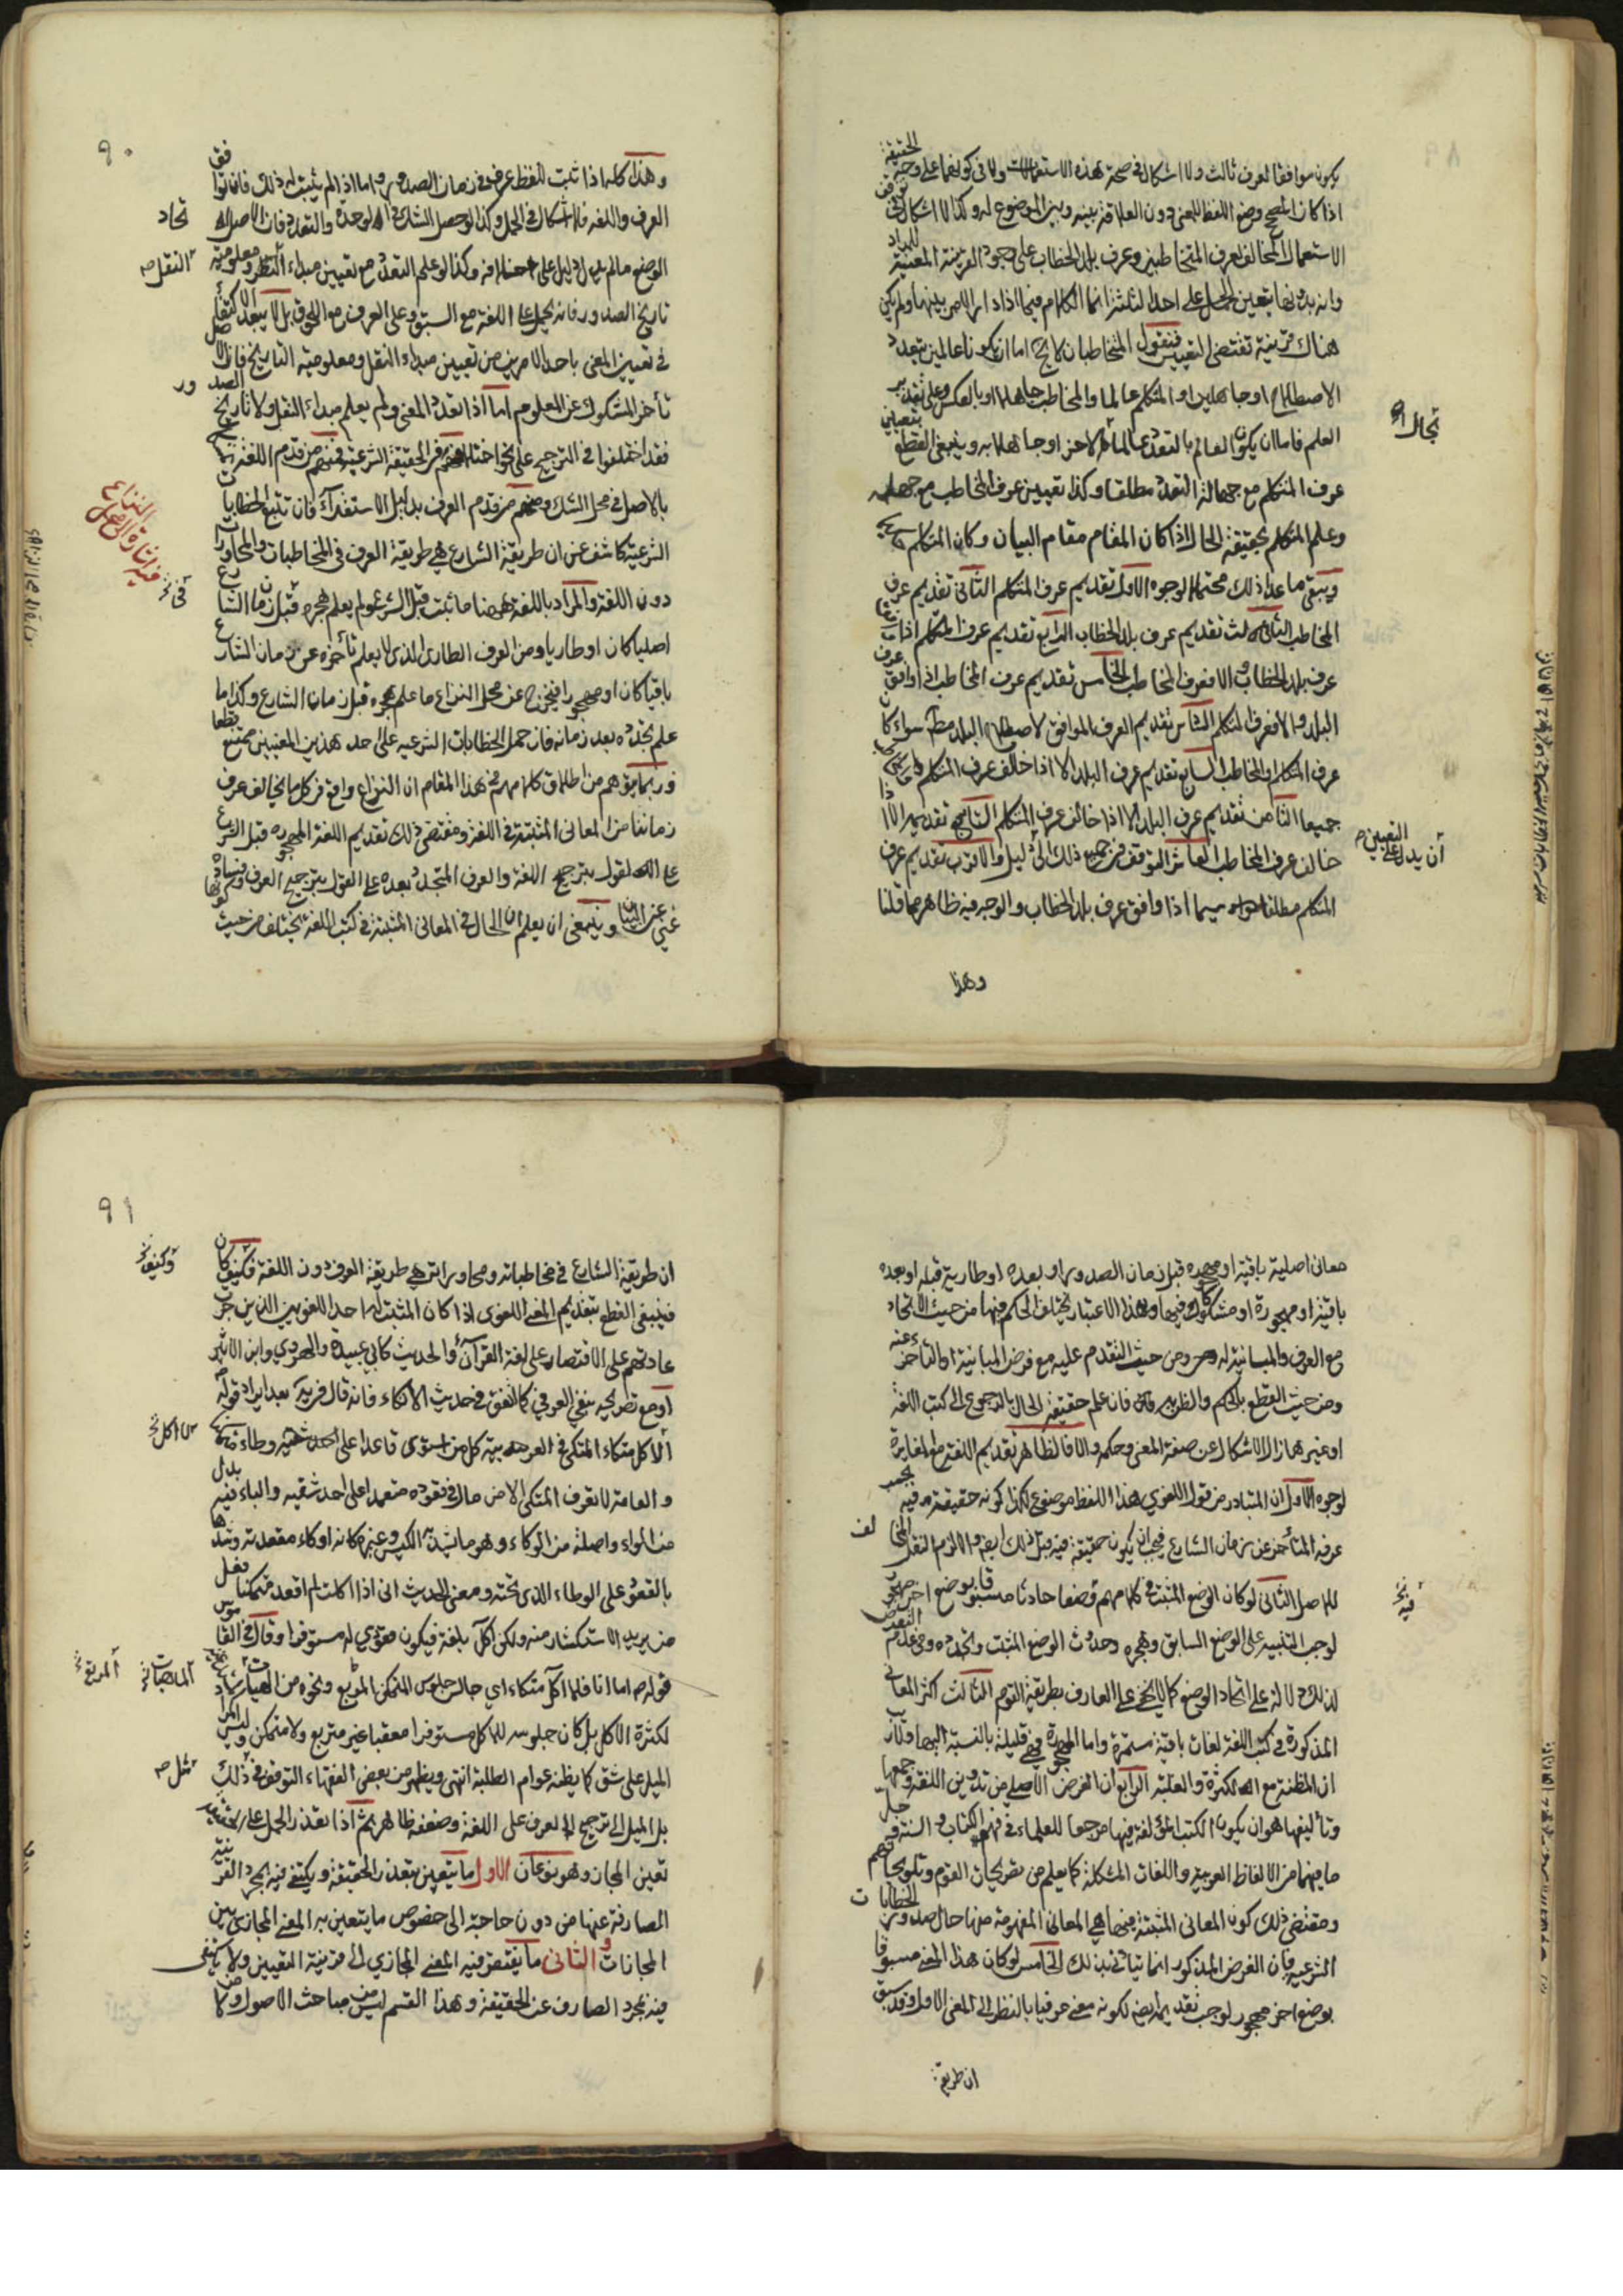 ٨٩
يكون موافقا لعرف ثالث ولا اشكال في صحة هذه الاستعمالات ولا في كونها على وجه الحقيقة
اذا كان المصحح وضع اللفظ للمعنى دون العلاقة بينه وبين الموضوع له وكذا لا اشكال في توقف
الاستعمال المخالف لعرف المتخاطبين وعرف بلد الخطاب على وجود القرينة المعينة للمراد
وانه بدونها يتعين الحمل على احد الثلثة انما الكلام فيما اذا دار الامر بينها ولم يكن
هناك قرينة تقتضي التعيين فنقول المتخاطبان لا يخ اما ان يكونا عالمين بتعدد
الاصطلاح او جاهلين او المتكلم عالما والمخاطب جاهلا او بالعكس وعلى تقدير
العلم فاما ان يكون العالم بالتعدد عالما الاخر او جاهلا به وينبغي القطع بتعيين
بحال
عرف المتكلم مع جهالة التعدد مطلقا وكذا تعيين عرف المخاطب مع جهله
وعلم المتكلم بحقيقة الحال اذا كان المقام مقام البيان وكان المتكلم
ويبقى ما عدا ذلك محتملا لوجوه الاول تقديم عرف المتكلم الثاني تقديم عرف
المخاطب الثالث تقديم عرف بلد الخطاب الرابع تقديم عرف المتكلم اذا
عرف بلد الخطاب والا فعرف المخاطب الخامس تقديم عرف المخاطب اذا وافق عرف
البلد والا فعرف المتكلم السادس تقديم العرف الموافق لاصطلاح البلد مطلقا سواء كان
عرف المتكلم او المخاطب السابع تقديم عرف البلد الا اذا خالف عرف المتكلم
جميعا الثامن تقديم عرف البلد الا اذا خالف عرف المتكلم التاسع تقديمه الا اذا
خالف عرف المخاطب العاشر التوقف في جميع ذلك الى دليل والاقرب تقديم عرف
ان يدل على التعيين صح
المتكلم مطلقا سيما اذا وافق عرف بلد الخطاب والوجه فيه ظاهر مما قلنا
وهذا
٩٠
وهذا كله اذا ثبت للفظ عرف في زمان الصدور واما اذا لم يثبت له ذلك فان توافق
العرف واللغة فلا اشكال في الحمل وكذا لو حصل الشك في الوحدة والتعدد فان الاصل
تحاد
الوضع ما لم يدل دليل على خلافه وكذا لو علم التعدد مع تعيين مبداء النقل ومعلومية
النقل صح
تاريخ الصدور فانه يحمل على اللغة مع السبق وعلى العرف مع اللحوق بل لا يبعد الاكتفاء
في تعيين المعنى باحد الامرين من تعيين مبداء النقل ومعلومية التاريخ فان الاصل
تأخر المشكوك عن المعلوم اما اذا تعدد المعنى ولم يعلم مبداء النقل ولا تاريخ الصدور
فقد اختلفوا في الترجيح على نحو اختلافهم في الحقيقة الشرعية فمنهم من قدم اللغة
بالاصل في محل الشك ومنهم من قدم العرف بدليل الاستقراء فان تتبع الخطابات
الشرعية كاشف عن ان طريقة الشارع هي طريقة العرف في المخاطبات والمحاورات
دون اللغة والمراد باللغة ههنا ما ثبت قبل الشرع ولم يعلم هجره قبل زمان الشارع
اصليا كان او طاريا ومن العرف الطاري الذي لا يعلم تأخره عن زمان الشارع
باقيا كان او مهجورا فيخرج عن محل النزاع ما علم هجره قبل زمان الشارع وكذا ما
علم تجدده بعد زمانه فان حمل الخطابات الشرعية على احد هذين المعنيين ممتنع قطعا
وربما يتوهم من اطلاق كلامهم في هذا المقام ان النزاع واقع في كل ما يخالف عرف
زماننا من المعاني المثبتة في اللغة ومقتضى ذلك تقديم اللغة المهجورة قبل الشرع
على القول بترجيح اللغة والعرف المتجدد بعده على القول بترجيح العرف وفساده
غني عن البيان وينبغي ان يعلم ان الحال في المعاني المثبتة في كتب اللغة يختلف من حيث
معاني اصلية باقية او مهجورة قبل زمان الصدور او بعده او طارية قبله او بعده
باقية او مهجورة او مشكوك فيها وبهذا الاعتبار يختلف الحكم فيها من حيث الاتحاد
مع العرف والمباينة له ومن حيث التقدم عليه مع فرض المباينة او التأخر عنه
ومن حيث القطع بالحكم والظن به فان علم حقيقة الحال بالرجوع الى كتب اللغة
او غيرها زال الاشكال عن صفة المعنى وحكمه والا فالظاهر تقديم اللغة مع المغايرة
لوجوه الاول ان المتبادر من قول اللغوي هذا اللفظ موضوع لكذا كونه حقيقة فيه بحسب
عرفه المتأخر عن زمان الشارع فيجب ان يكون حقيقة فيه قبل ذلك ايضا والا لزم النقل المخالف
للاصل الثاني لو كان الوضع المثبت في كلامهم وضعا حادثا مسبوقا بوضع اخر مهجور
فيه
لوجب التنبيه على الوضع السابق وهجره وحدوث الوضع المثبت وتجدده وفي عدم التعرض
لذلك دلالة على اتحاد الوضع كما لا يخفى على العارف بطريقة القوم الثالث اكثر المعاني
المذكورة في كتب اللغة لغات باقية مستمرة واما المهجورة فهي قليلة بالنسبة اليها ولا ريب
ان المظنة مع الكثرة والغلبة الرابع ان الغرض الاصلي من تدوين اللغة وجمعها
وتأليفها هو ان يكون الكتب المؤلفة فيها مرجعا للعلماء في فهم الكتاب والسنة وحل
ما فيهما من الالفاظ العربية واللغات المشكلة كما يعلم من تصريحات القوم وتلويحاتهم
ومقتضى ذلك كون المعاني المثبتة فيها هي المعاني المفهومة منها حال صدور الخطابات
الشرعية فان الغرض المذكور انما يتأتى بذلك الخامس لو كان هذا المعنى مسبوقا
بوضع اخر مهجور لوجب تقديمه ايضا لكونه معنى عرفيا بالنظر الى المعنى الاول وقد سبق
ان طريقة
٩١
ان طريقة الشارع في مخاطباته ومحاوراته هي طريقة العرف دون اللغة فكيف كان
وكيف
فينبغي القطع بتقديم المعنى اللغوي اذا كان المثبت له احد اللغويين الذين جرت
عادتهم على الاقتصار على لغة القرآن والحديث كأبي عبيدة والهروي وابن الاثير
او مع تصريحه بنفي العرفي كما اتفق في حديث الاتكاء فانه قال فيه بعد ايراد قوله
لا آكل متكاء المتكي في العربية كل من استوى قاعدا على وطاء
والعامة لا تعرف المتكي الا من مال في قعوده معتمدا على احد شقيه والتاء فيه بدل
من الواو واصله من الوكاء وهو ما يشد به الكيس وغيره كانه اوكاء مقعدته وشدها
بالقعود على الوطاء الذي تحته ومعنى الحديث اني اذا اكلت لم اقعد متمكنا فعل
من يريد الاستكثار منه ولكن آكل بلغة فيكون قعودي له مستوفزا وقال في القاموس
قوله ص اما انا فلا آكل متكاء اي جالسا جلوس المتمكن المربع ونحوه من الهيئات
لكثرة الاكل بل كان جلوسه للاكل مستوفزا مقعيا غير متربع ولا متمكن وليس المراد
الميل على شق كما يظنه عوام الطلبة انتهى ويظهر من بعض الفقهاء التوقف في ذلك
مثل صح
بل الميل الى ترجيح العرف على اللغة وضعفه ظاهر ثم اذا تعذر الحمل على الحقيقة
تعين المجاز وهو نوعان الاول ما يتعين بتعذر الحقيقة ويكتفى فيه بمجرد القرينة
الصارفة عنها من دون حاجة الى خصوص ما يتعين به المعنى المجازي بين
المجازات والثاني ما يفتقر فيه المعنى المجازي الى قرينة التعيين ولا يكتفى
فيه بمجرد الصارف عن الحقيقة وهذا القسم ليس من مباحث الاصول